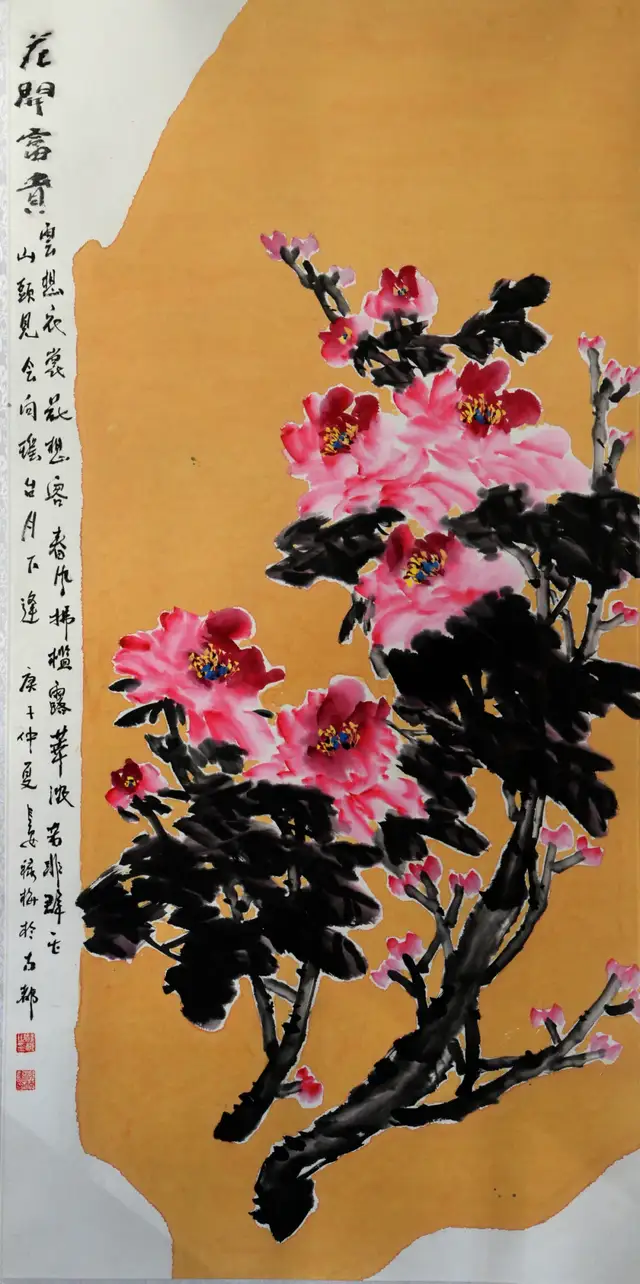 花開富貴
雲想衣裳花想容春风拂檻露華濃若非群玉
山頭見会向瑤台月下逢 庚子仲夏 梅於都